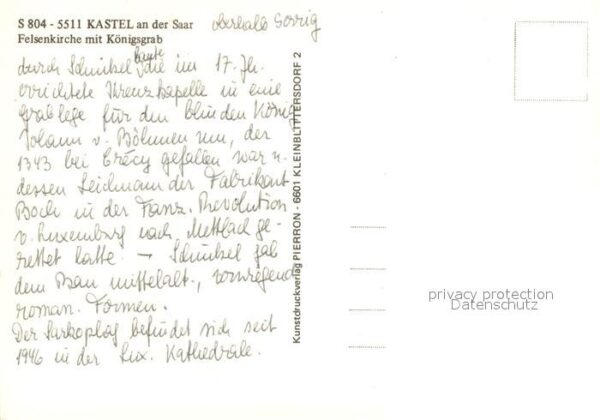 S 804 - 5511 KASTEL an der Saar
Felsenkirche mit Königsgrab
oberhalb Serrig
baute
durch Schinkel die im 17. Jh.
errichtete Kreuzkapelle in eine
Grablege für den blinden König
Johann v. Böhmen um, der
1343 bei Crécy gefallen war u.
dessen Leichnam der Fabrikant
Boch in der Franz. Revolution
v. Luxemburg nach Mettlach ge-
rettet hatte. – Schinkel gab
dem Bau mittelalt., vorwiegend
roman. Formen.
Der Sarkophag befindet sich seit
1946 in der Lux. Kathedrale.
Kunstdruckverlag PIERRON - 6601 KLEINBLITTERSDORF 2
privacy protection
Datenschutz